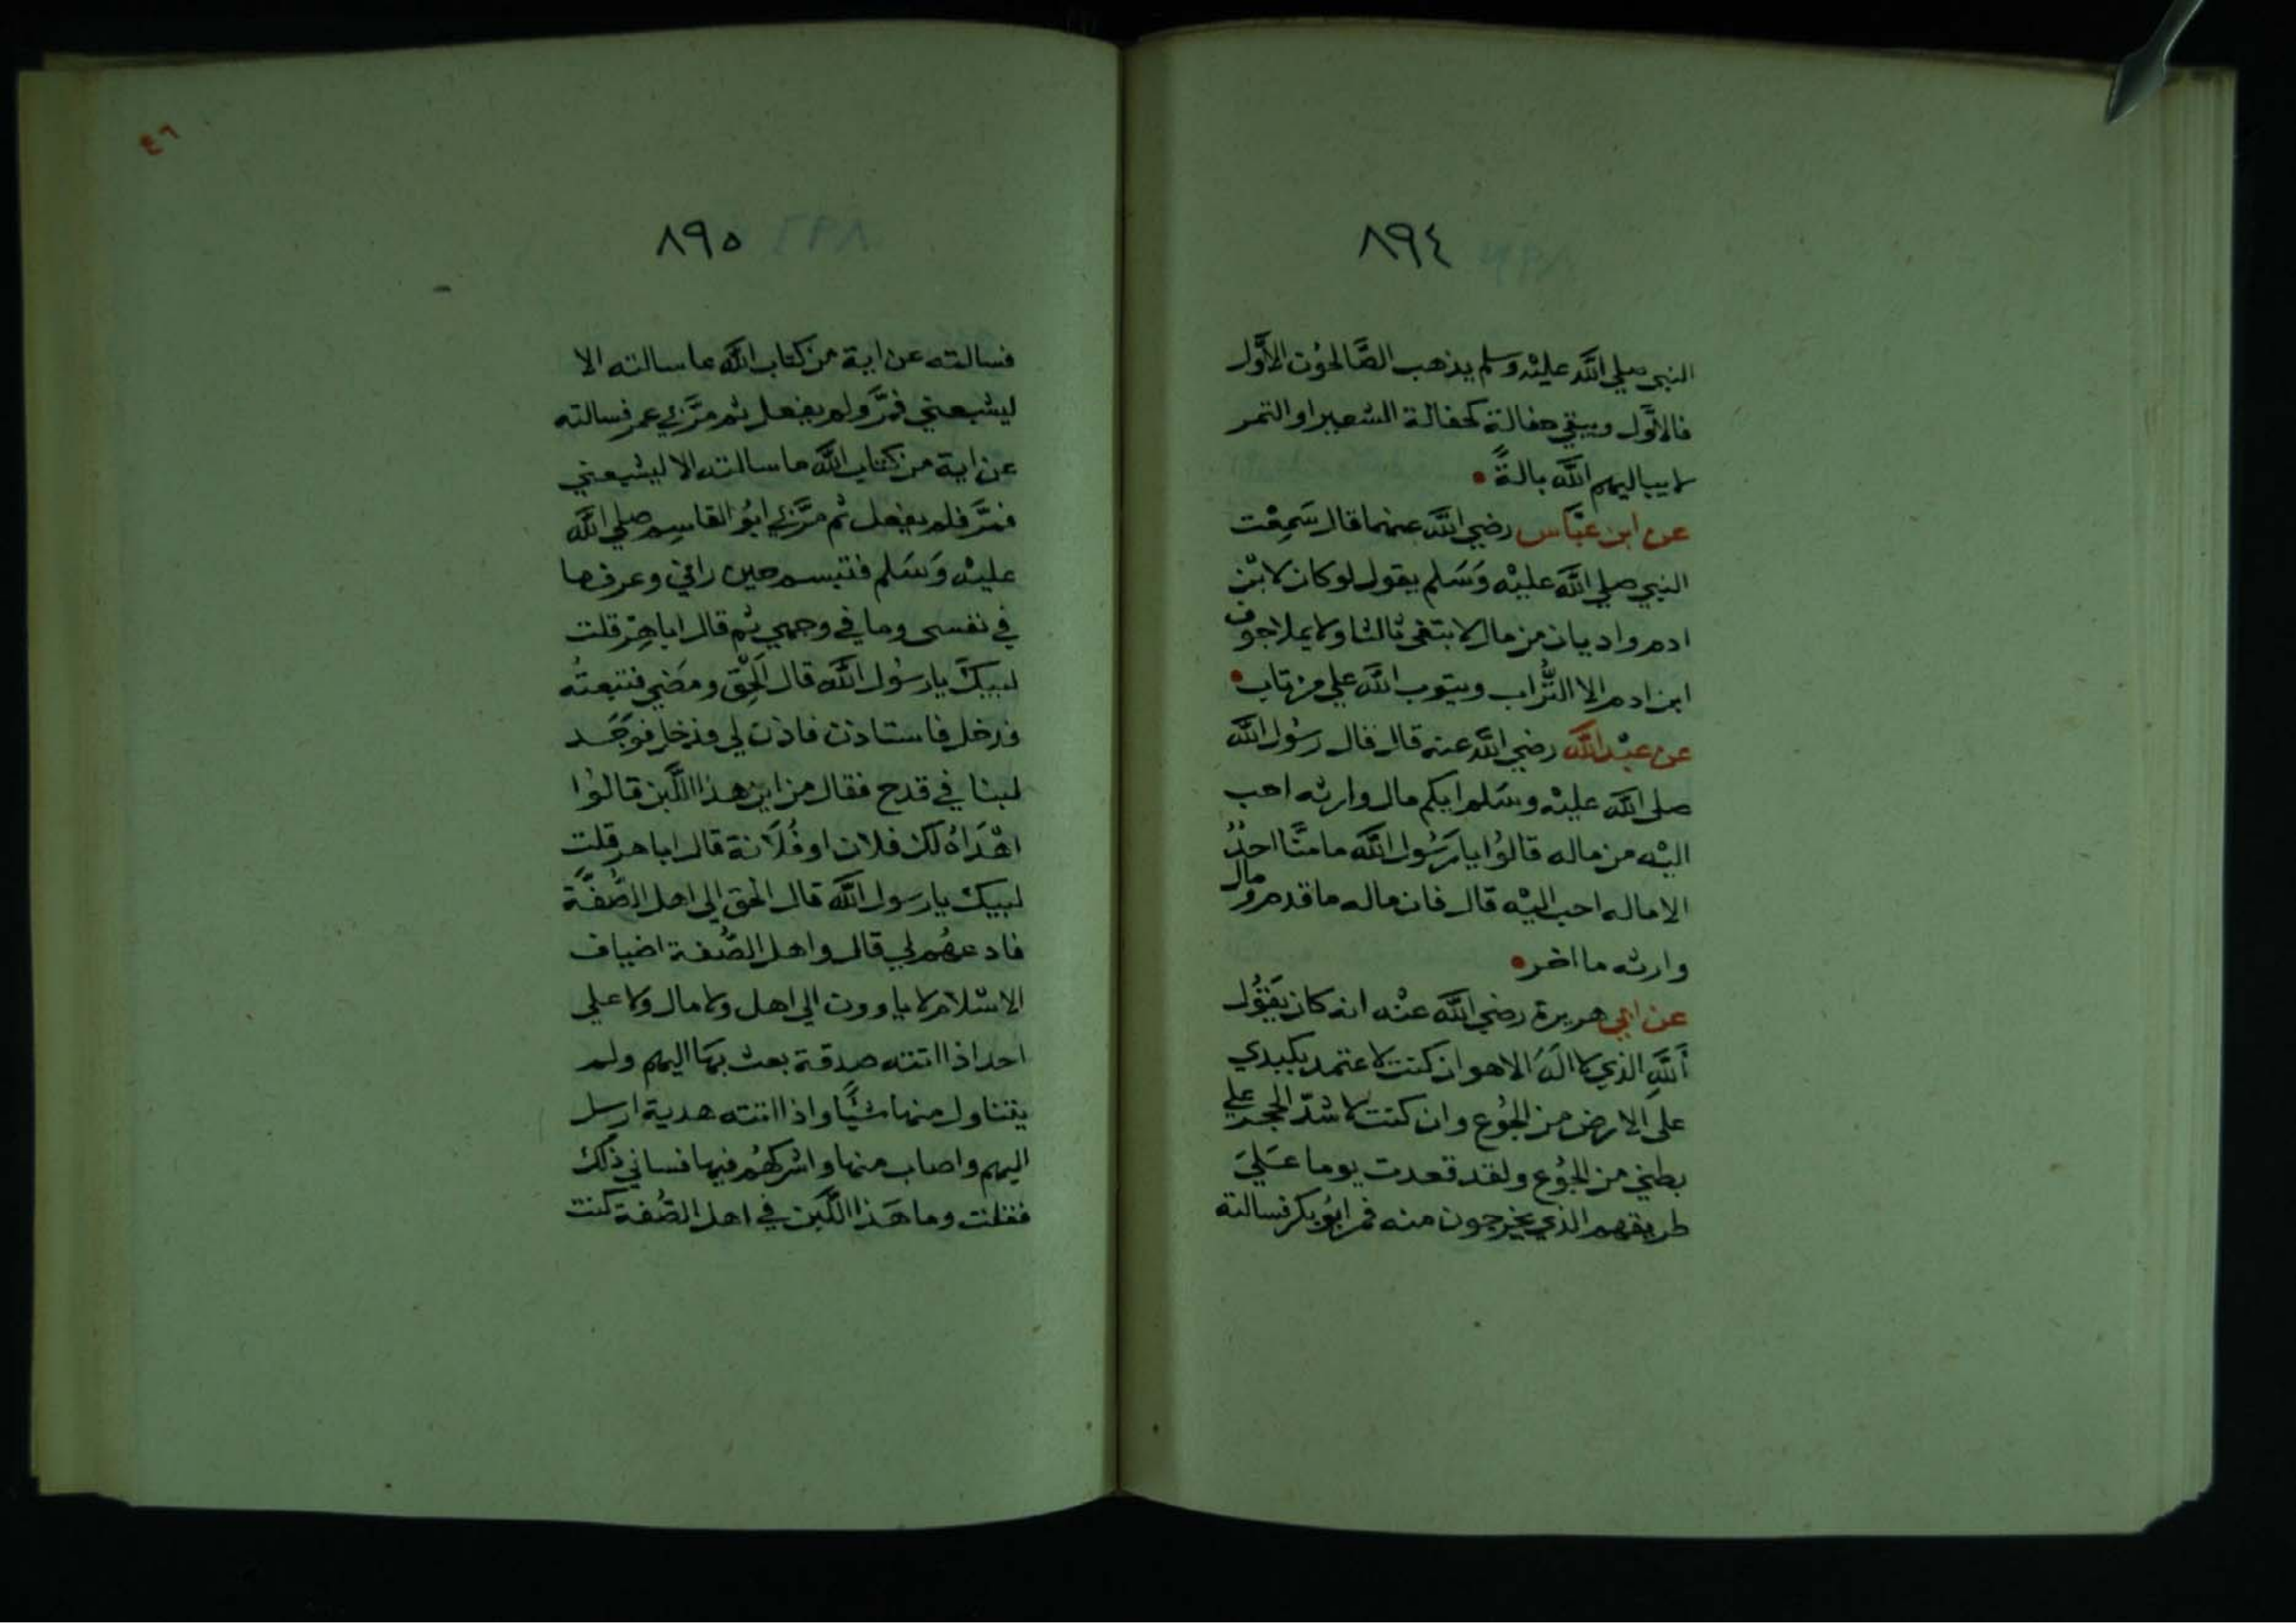 ٨٩٤
النبي صلي الله عليْه وسلم يذهب الصَّالحوُن الاوَّل
فالاوَّل ويبقي حفالة كحفالة الشعير او التمر
لا يباليهم الله بالةً
عن ابن عبَّاس رضي الله عنهما قال سَمِعْت
النبي صلي الله عليْه وَسَلم يقول لو كان لابْن
ادم واديان من مال لابتغى ثالثا ولا يملا جوف
ابن ادم الا التُّراب ويتوب الله علي من تاب
عن عبْد الله رضي الله عنه قال قال رسُول الله
صلى الله عليْه وسَلم ايكم مال وارثه احب
اليْه من ماله قالوُا يا رَسُول الله ما منَّا احدٌ
الا ماله احب اليْه قال فان ماله ما قدم ومال
وارثه ما اخر
عن ابي هريرة رضي الله عنْه انه كان يَقوُل
أَللهِ الذي لا الَه الا هو ان كنت لاعتمد بكبدي
على الارض من الجوُع وان كنت لاشدّ الحجر علي
بطني من الجوُع ولقد قعدت يوما عَلَيَ
طريقهم الذي يخرجون منه فمر ابوُ بكر فسالته
٤٦
٨٩٥
فسالته عن اية من كتاب الله ما سالته الا
ليشبعني فمَّر ولم يفعل ثم مرَّ بي عمر فسالته
عن اية من كتاب الله ما سالته الا ليشبعني
فمرَّ فلم يفعل ثم مرَّ بي ابوُ القاسِم صلي الله
عليْه وَسَلم فتبسم حين راني وعرف ما
في نفسى وما في وجهي ثم قال اباهِرّ قلت
لبيكَ يا رسُول الله قال الحْق ومَضي فتبعتُه
فدخل فاستاذن فاذن لي فدخل فوَجَد
لبنا في قدح فقال من اين هذا اللَّبن قالوُا
اهْدَاهُ لك فلان او فُلَانة قال اباهر قلت
لبيك يا رسول الله قال الحق الي اهل الصُّفَّة
فادعهُم لي قال واهل الصُّفة اضياف
الاسْلام لا ياوون الي اهل ولا مال ولا علي
احد اذا اتته صدقة بعث بهَا اليهم ولم
يتناول منها شيًا واذا اتته هدية ارسل
اليهم واصاب منها واشركهُم فيها فساني ذلك
فقلت وما هَذا اللَّبن في اهل الصُّفة كنت